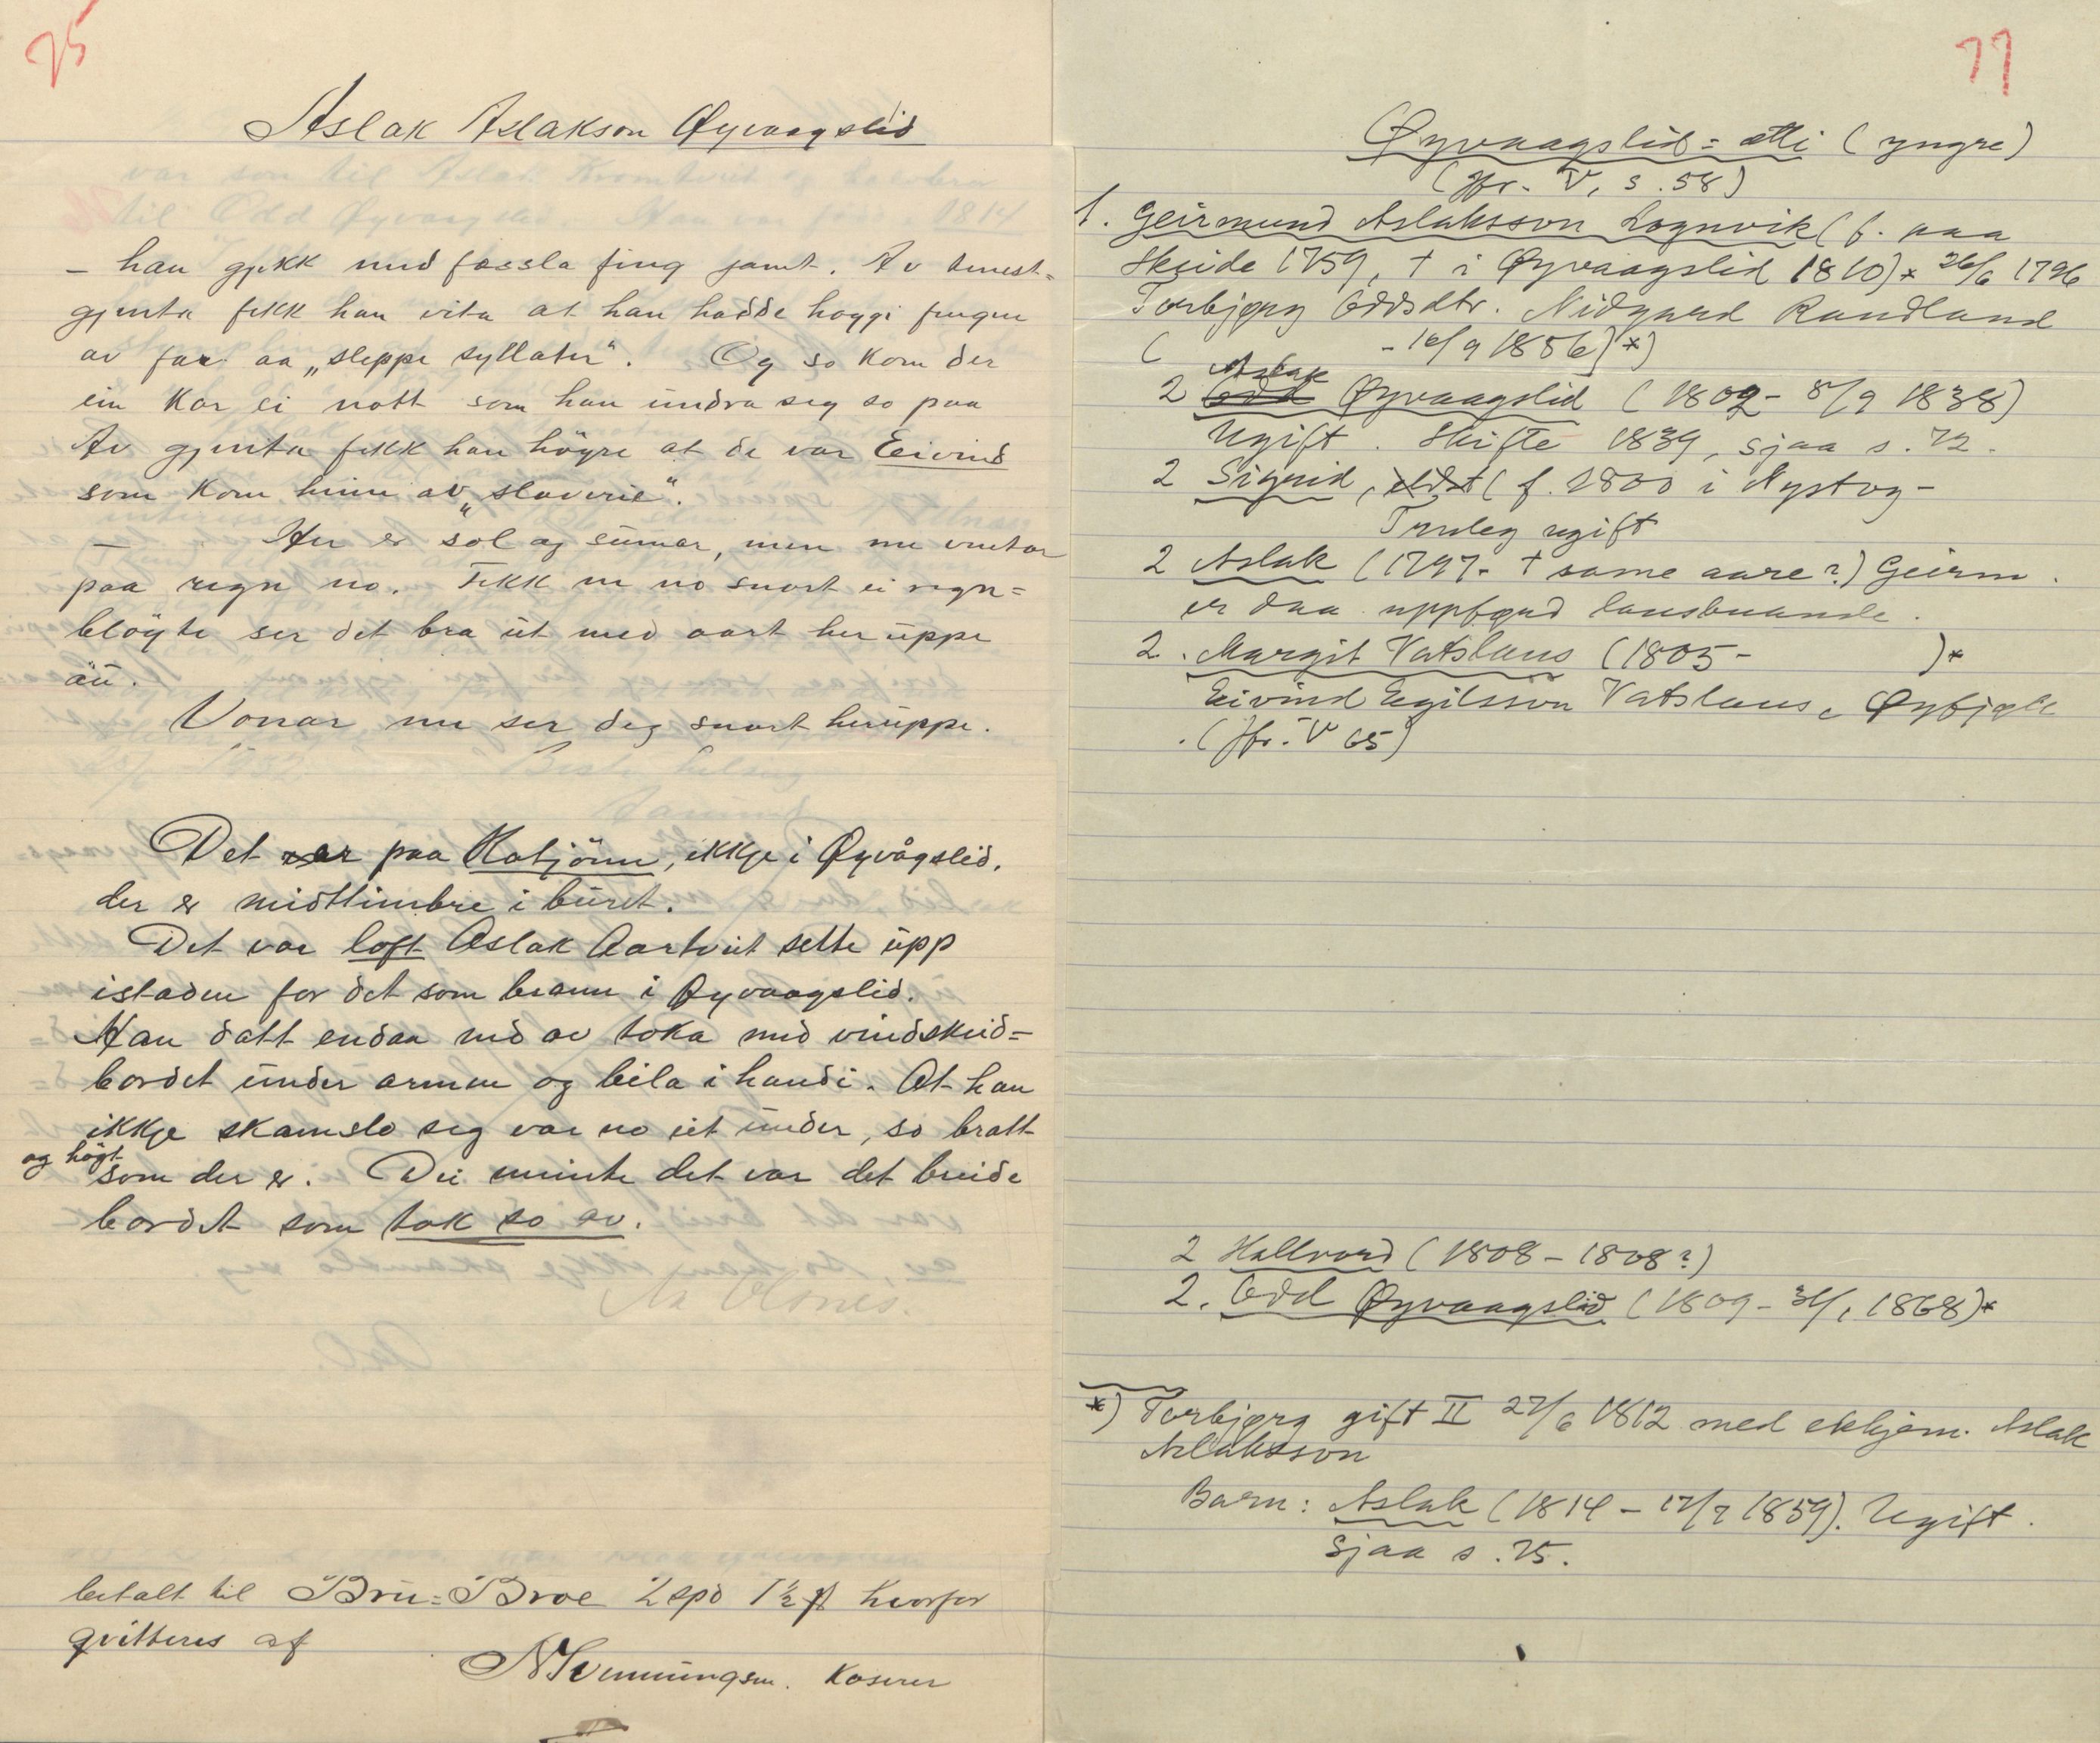 75
Aslak Aslakson Øyvaagslid
- han gjekk med fassla fing jamt. Av tenest=
gjenta fekk han vita at han hadde hoggi fingen
av for aa „sleppe syllater". Og so kom der
ein kar ei nott som han undra seg so paa
Av gjenta fekk han høyre at de var Eivind
som kom heim av „slaverie".
— Her er sol og sumar, men me ventar
paa regn no. Fekk me no snart ei regn=
bløyte ser det bra ut med aart her uppe
au.
Vonar me ser deg snart heruppe.
Det var paa Kotjönn, ikkje i Øyvågslid.
der er midttimbre i buret.
Det var loft Aslak Aartveit sette upp
istaden for det som brann i Øyvaagslid.
Han datt endaa ned av toka med vindskeid=
bordet under armen og bila i handi. At han
ikkje skamslo seg var no eit under, so bratt
og högt
som der er. Dei meinte det var det breide
bordet som tok so av.
betalt til Bru=Broe 2 spd 1½ hvorfor
qvitteres af
N Henningsen. Kaserer
77
Øyvaagslid=ætti (yngre)
(Jfr. V, s. 58)
1. Geirmund Aslaksson Lognvik (f. paa
Skeide 1759, † i Øyvaagslid 1810)* 26/6 1796
Torbjørg Oddsdtr. Nidgard Raudland
( - 16/9 1856)*)
Aslak
2 Odd Øyvaagslid (1802- 8/9 1838)
Ugift. Skifte 1839, sjaa s. 72.
2 Sigrid, eldst (f. 1800 i Nystog-
Truleg ugift
2 Aslak (1797- † same aare?) Geirm.
er daa uppførd lausbuande.
2. Margit Vatslaus (1805- )*
Eivind Egilsson Vatslaus, Øyfjell
. (Jfr. V 65)
2 Hallvord (1808-1808?)
2. Odd Øyvaagslid (1809- 31/1 1868)*
*) Torbjørg gift II 27/6 1812 med ekkjem. Aslak
Aslaksson
Barn: Aslak (1814 - 17/7 1859). Ugift.
Sjaa s. 75.